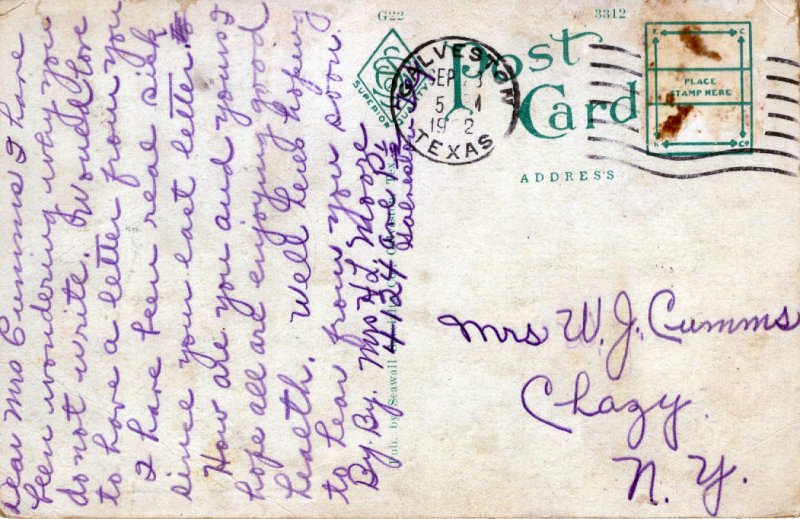 Dear Mrs Cumms I have
been wondering why you
do not write. Would love
to have a letter from you
I have been real sick
since your last letter.
How are you and yours I
hope all are enjoying good
health. Well heres hoping
to hear from you soon.
By. By. Mrs H. L. Moore
4124 Ave
Galveston
Pub. by Seawall
G22
3312
SUPERIOR
QUALITY
GALVESTON
SEP
5
19 2
TEXAS
Post
Card
PLACE
STAMP HERE
ADDRESS
Mrs W. J. Cumms
Chazy.
N. Y.